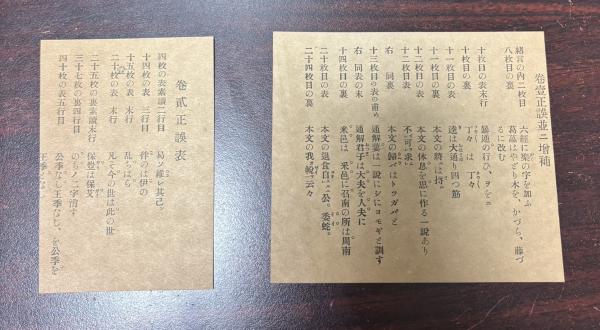 卷壹正誤並ニ增補
緒言の內二枚目 六經に樂の字を加ふ
八枚目の裏 葛藟はやどり木を、かづら、藤づ
るに改む
十枚目の表末行
十枚目の裏 丁々は 丁々
十一枚目の表 逵は大通り四つ筋
十一枚目の裏 本文の將は持。
十二枚目の表 本文の休息を思に作る一說あり
十二枚目表 不可求に
右 同裏 本文の歸はトツガバと
十三枚目の表の 通解蔞は一說にシにヨモギと訓す
右 同表の末 通解君子は大夫を人夫に
十四枚目の裏 米邑は 采邑に召南の所は周南
二十枚目の表 本文の退食自公。委蛇。
二十四枚目の裏 本文の我 云々
卷貳正誤表
四枚の表素讀二行目 易シ維レ其己。
十四枚の表 三行目 伴のは伊の
十五枚の表 末行 乱らはら
二十枚の表 末行 凡て今の世は此の世
二十五枚の裏素讀末行 保登は保艾
三十七枚の裏四行目 のモノ二字消す
四十枚の表五行目 公季なし王季なし を公季を
王季となし